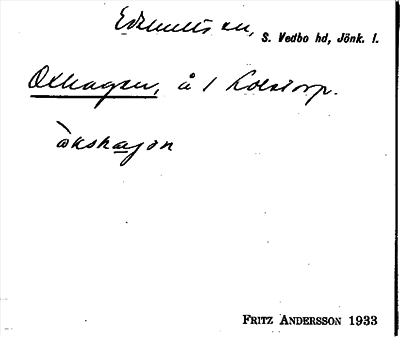 Edshults sn, S. Vedbo hd, Jönk. l.
Oxhagen, å 1 Kolstorp.
òkshagən
FRITZ ANDERSSON 1933